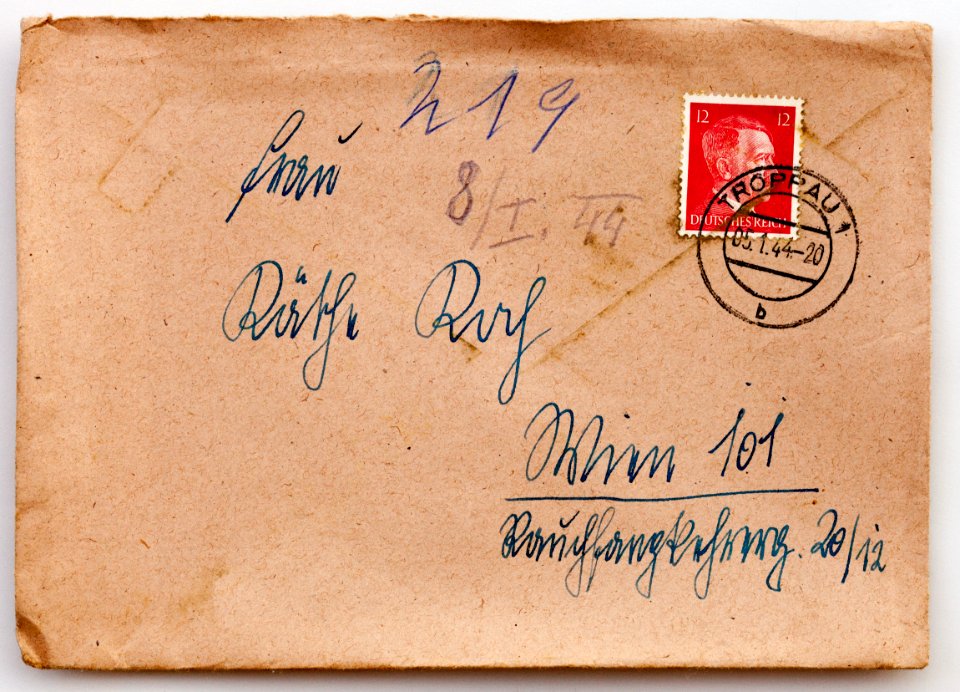 219
12 12
Frau
8/I. 44
DEUTSCHES REICH
TROPPAU 1
05.1.44.-20
b
Käthe Koch
Wien 101
Rauchfangkehrerg. 20/12